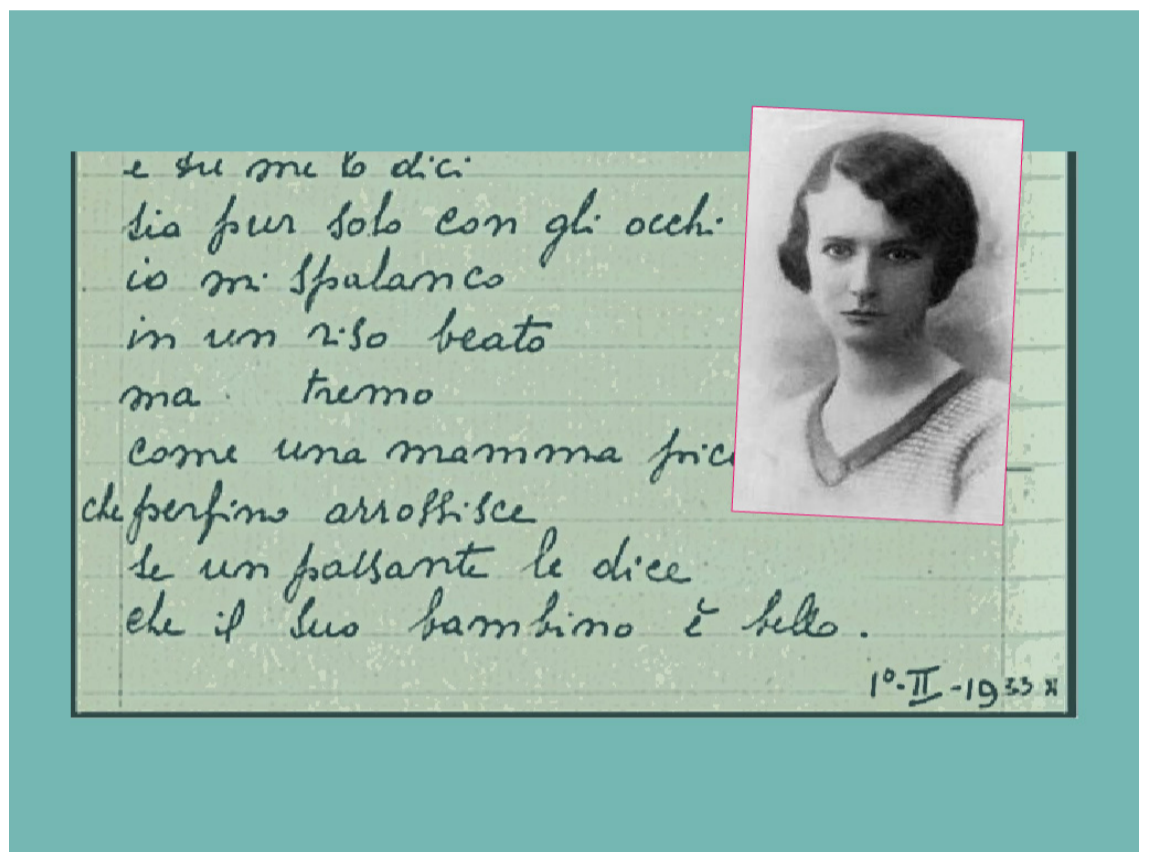 e tu me lo dici
sia pur solo con gli occhi
io mi spalanco
in un riso beato
ma tremo
come una mamma
che perfino arrossisce
se un passante le dice
che il suo bambino è bello.
1°-II-1933 XI